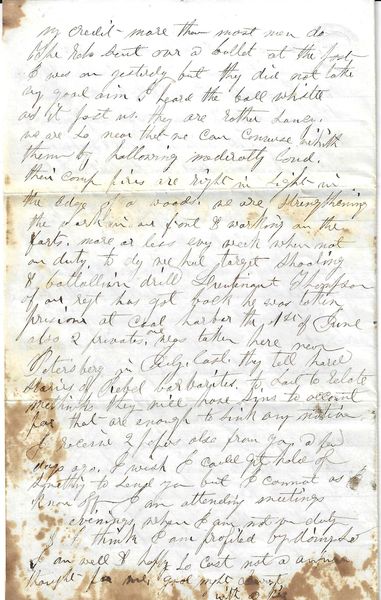 my credit - more than most men do
The Rebs sent our a bullet at the post
I was on yesterday but they did not take
very good aim I heard the ball whistle
as it past us. they are rather Saucy.
we are so near that we can Converse with
them by hallowing moderatly loud.
their camp fires are right in Sight in
the edge of a woods. we are strengthening
the works in our front & working on the
forts. more or less evry week when not
on duty. to day we had target shooting
& battallion drill Lieutenant Thompson
of our regt has got back he was taken
prisioner at Coal harbor the 1st of June
also 2 privates. was taken here near
Petersburg in July last. they tell hard
stories of Rebel barbarites. to
methinks they will have sins to account
for that are enough to sink any nation
I received 2 papers also from you a few
days ago. I wish I could get hold of
something to send you but I cannot as I
know of. I am attending meetings
evenings, when I am not on duty
I think I am profited by
I am well & hope so cast not a
thought for me. good night